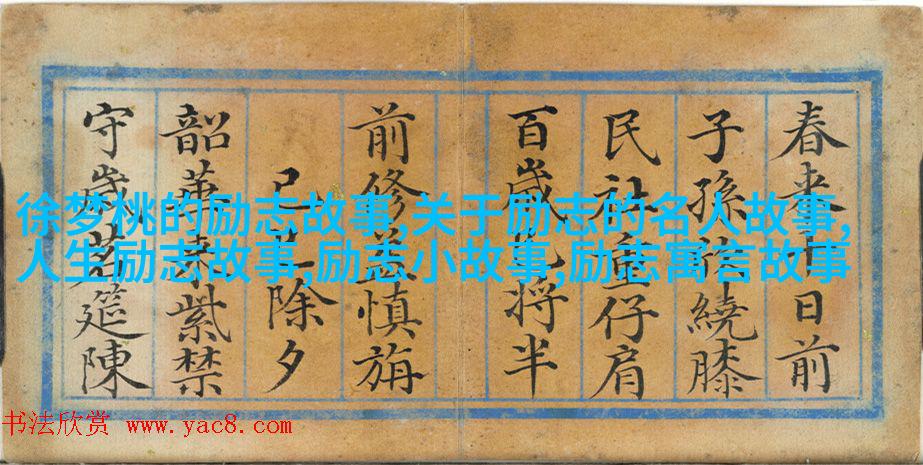 春來日前
子孫繞膝
民社仔肩
百歲將半
前修慎旃
除夕
韶華紫禁
守歲筵陳
徐梦桃的励志故事,关于励志的名人故事,
人生励志故事,励志小故事,励志寓言故事
书法欣赏 www.yac8.com